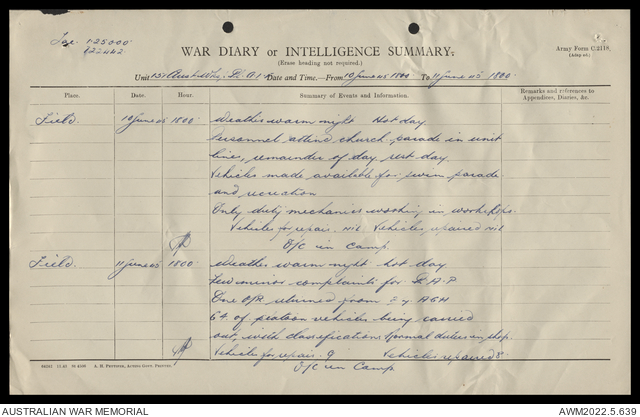 1-25000
822442
WAR DIARY or INTELLIGENCE SUMMARY.
(Erase heading not required.)
Army Form C.2118
(Adapted).
Unit 151 Aust Date and Time.—From 10 June 45 1800 To 11 June 45 1800.
Place. Date. Hour. Summary of Events and Information. Remarks and references to Appendices, Diaries, &c.
Field. 10 June 45 1800 Weather warm night Hot day
Personnel attend church parade in unit
lines, remainder of day rest day.
Vehicles made available for swim parade
and recreation
Only duty mechanics working in workshops.
Vehicles for repair. nil Vehicles repaired nil
O/C in Camp.
Field. 11 June 45 1800 Weather warm night hot day
Few minor complaints for R.A.P
One O/R returned from 2/4 AGH
of platoon vehicles being carried
out, with classifications normal duties in shop.
Vehicles for repair. 9 Vehicles repaired 8.
O/C in Camp
A. H. PETTIFER, ACTING GOVT. PRINTER.
AUSTRALIAN WAR MEMORIAL
AWM2022.5.639